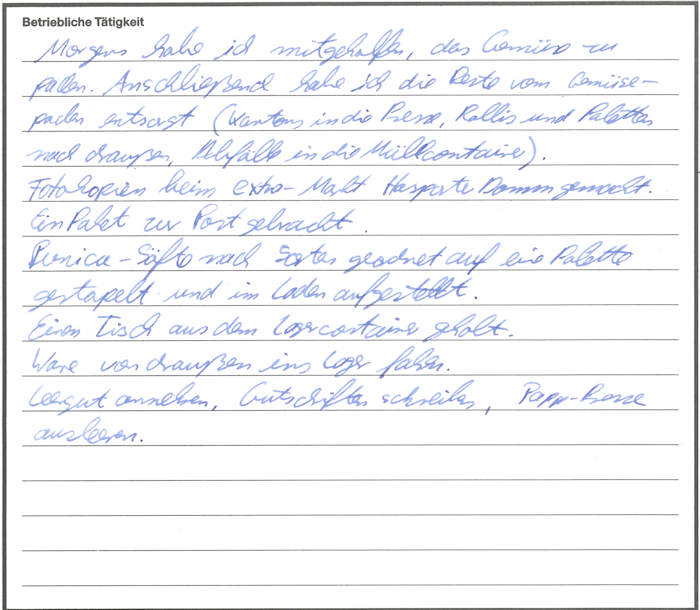 Betriebliche Tätigkeit
Morgens habe ich mitgeholfen, das Gemüse zu
packen. Anschließend habe ich die Reste vom Gemüse-
packen entsorgt (Kartons in die Presse, Rollis und Paletten
nach draußen, Abfälle in die Müllcontainer).
Fotokopien beim extra-Markt Hasporter Damm gemacht.
Ein Paket zur Post gebracht.
Punica-Säfte nach Sorten geordnet auf eine Palette
gestapelt und im Laden aufgestellt.
Einen Tisch aus dem Lagercontainer geholt.
Ware von draußen ins Lager fahren.
Leergut annehmen, Gutschriften schreiben, Papp-Presse
ausleeren.